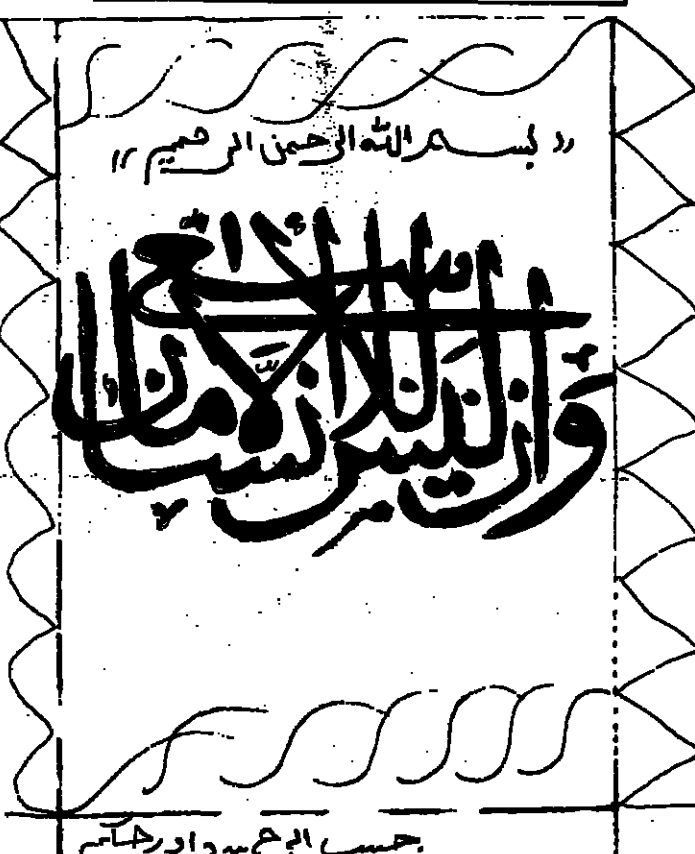 « بسم الله الرحمن الرحيم »
وَأن لَّيسَ للإنسَانِ إلَّا مَا سَعَى